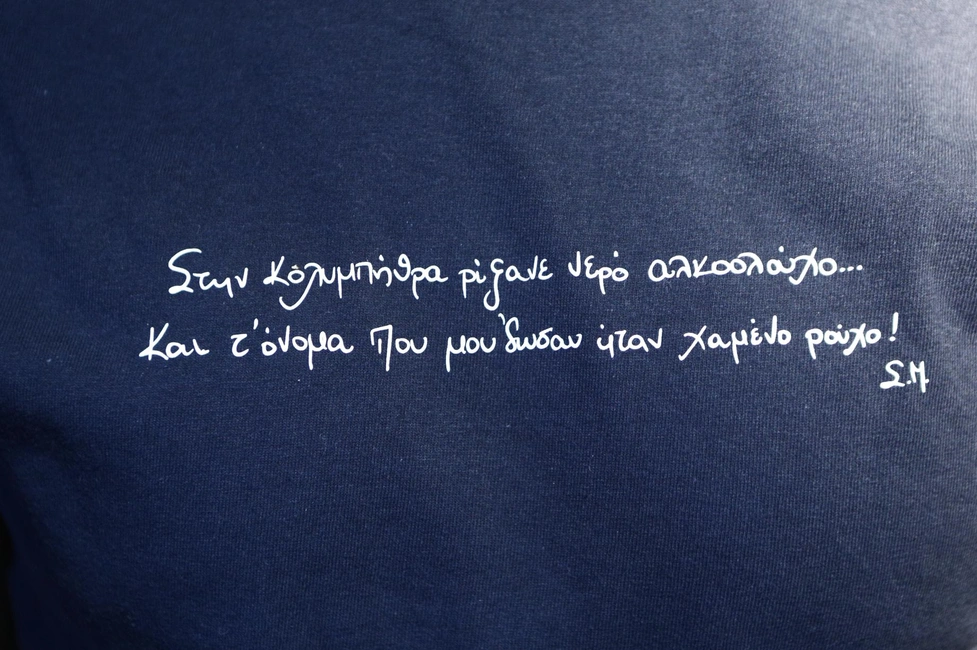 Στην κολυμπήθρα ρίξανε νερό αλκοολούχο...
Και τ' όνομα που μου 'δωσαν ήταν χαμένο ρούχο!
Σ.Μ